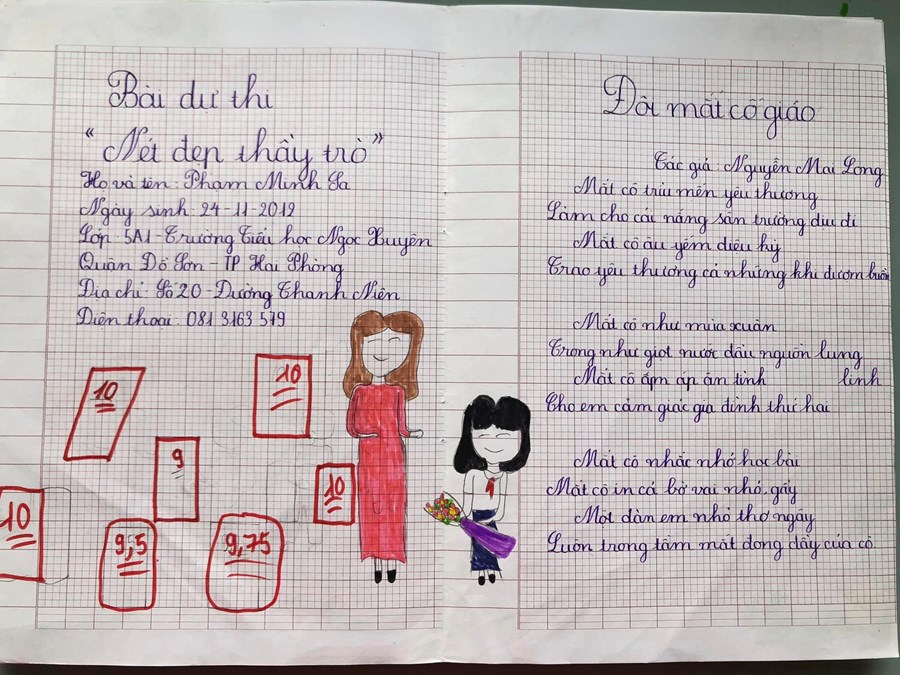 Bài dự thi
“Nét đẹp thầy trò”
Họ và tên: Phạm Minh Sa
Ngày sinh: 24-11-2012
Lớp: 5A1-Trường Tiểu học Ngọc Xuyên
Quận Đồ Sơn - TP Hải Phòng
Địa chỉ: Số 20 - Đường Thanh Niên
Điện thoại: 081 3163 579
10
10
9
10
10
9,5
9,75
Đôi mắt cô giáo
Tác giả: Nguyễn Mai Long
Mắt cô trìu mến yêu thương
Làm cho cái nắng sân trường dịu đi
Mắt cô âu yếm diệu kỳ
Trao yêu thương cả những khi đượm buồn
Mắt cô như mùa xuân
Trong như giọt nước đầu nguồn lung
Mắt cô ấm áp ân tình linh
Cho em cảm giác gia đình thứ hai
Mắt cô nhắc nhở học bài
Mắt cô in cả bờ vai nhỏ, gầy
Một đàn em nhỏ thơ ngây
Luôn trong tầm mắt dong đầy của cô.